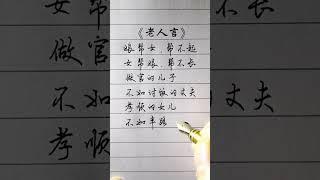 《老人言》
娘帮女，帮不起
女帮娘，帮不长
做官的儿子
不如讨饭的丈夫
孝顺的女儿
不如半路